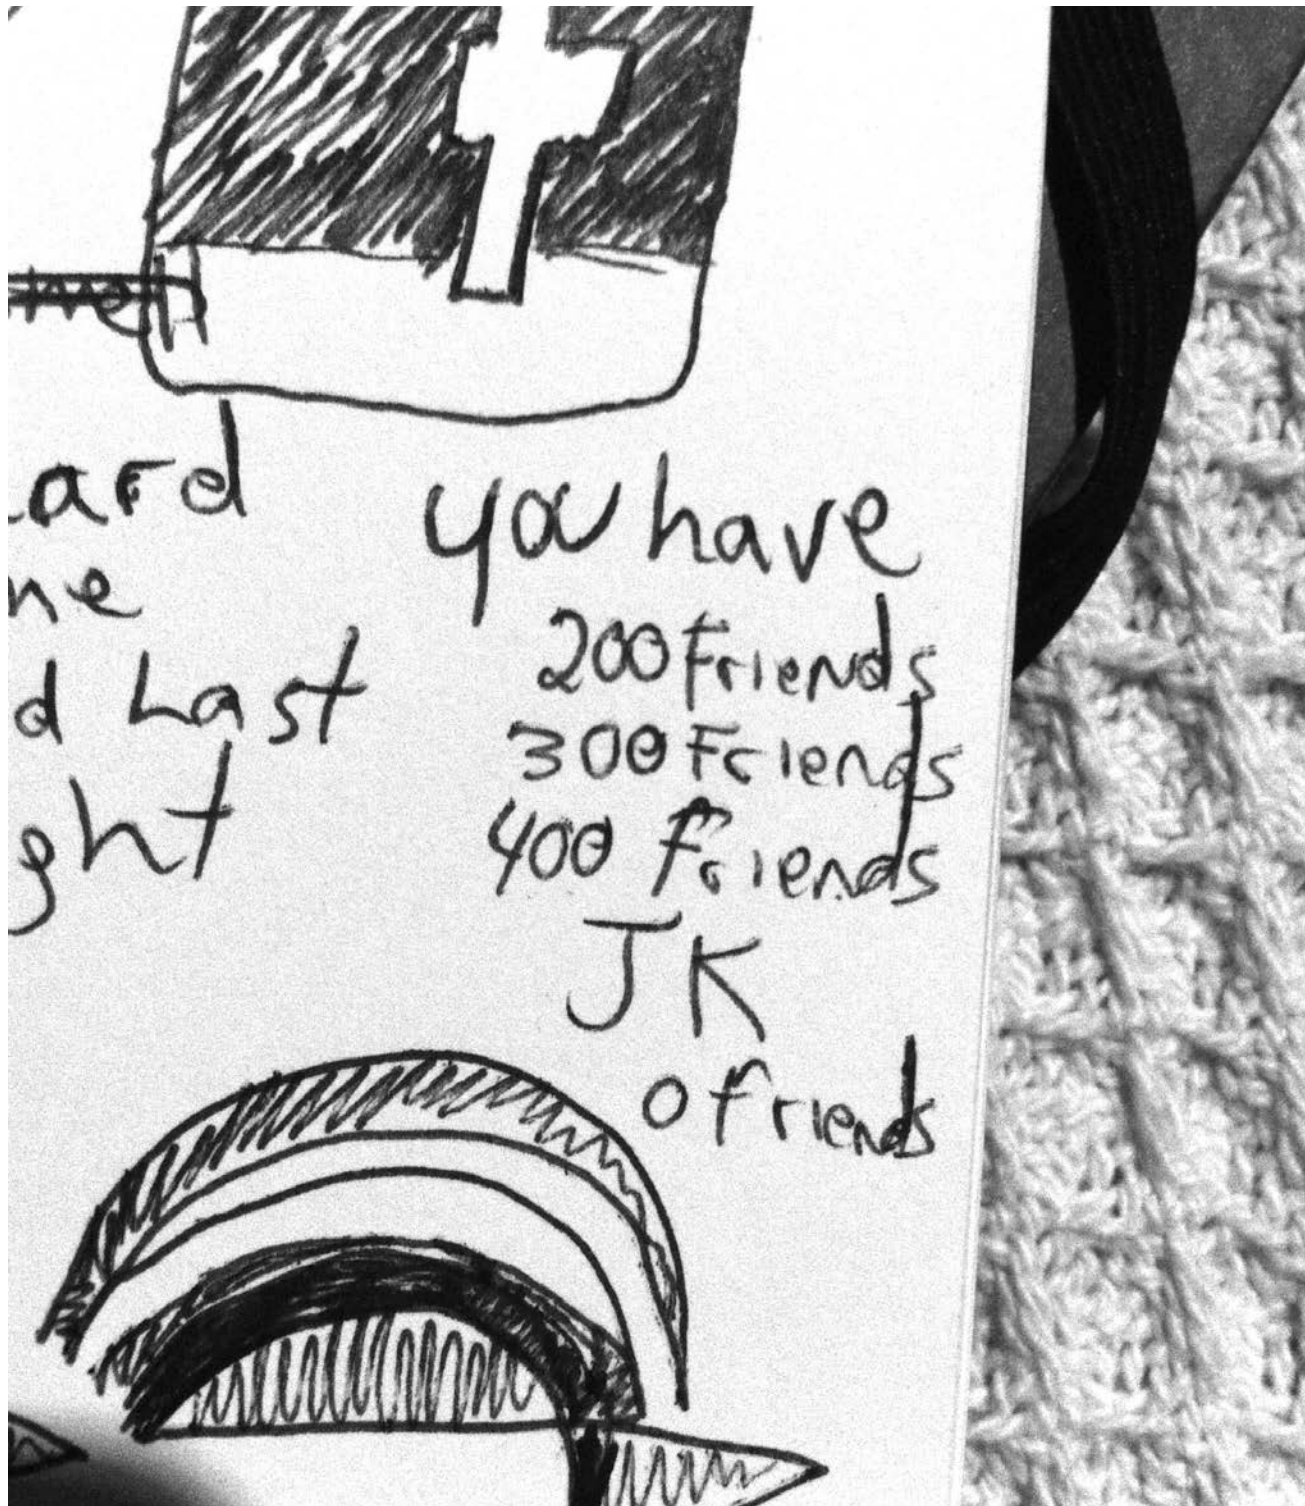 ard
ne
d Last
ght
you have
200 friends
300 Friends
400 friends
JK
0 friends